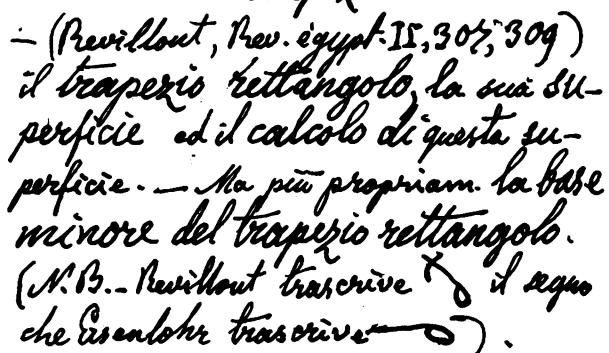 — (Revillout, Rev. égypt. II, 307, 309)
il trapezio rettangolo, la sua su-
perficie ed il calcolo di questa su-
perficie. — Ma più propriam. la base
minore del trapezio rettangolo.
(N.B. — Revillout trascrive il segno
che Eisenlohr trascrive ).